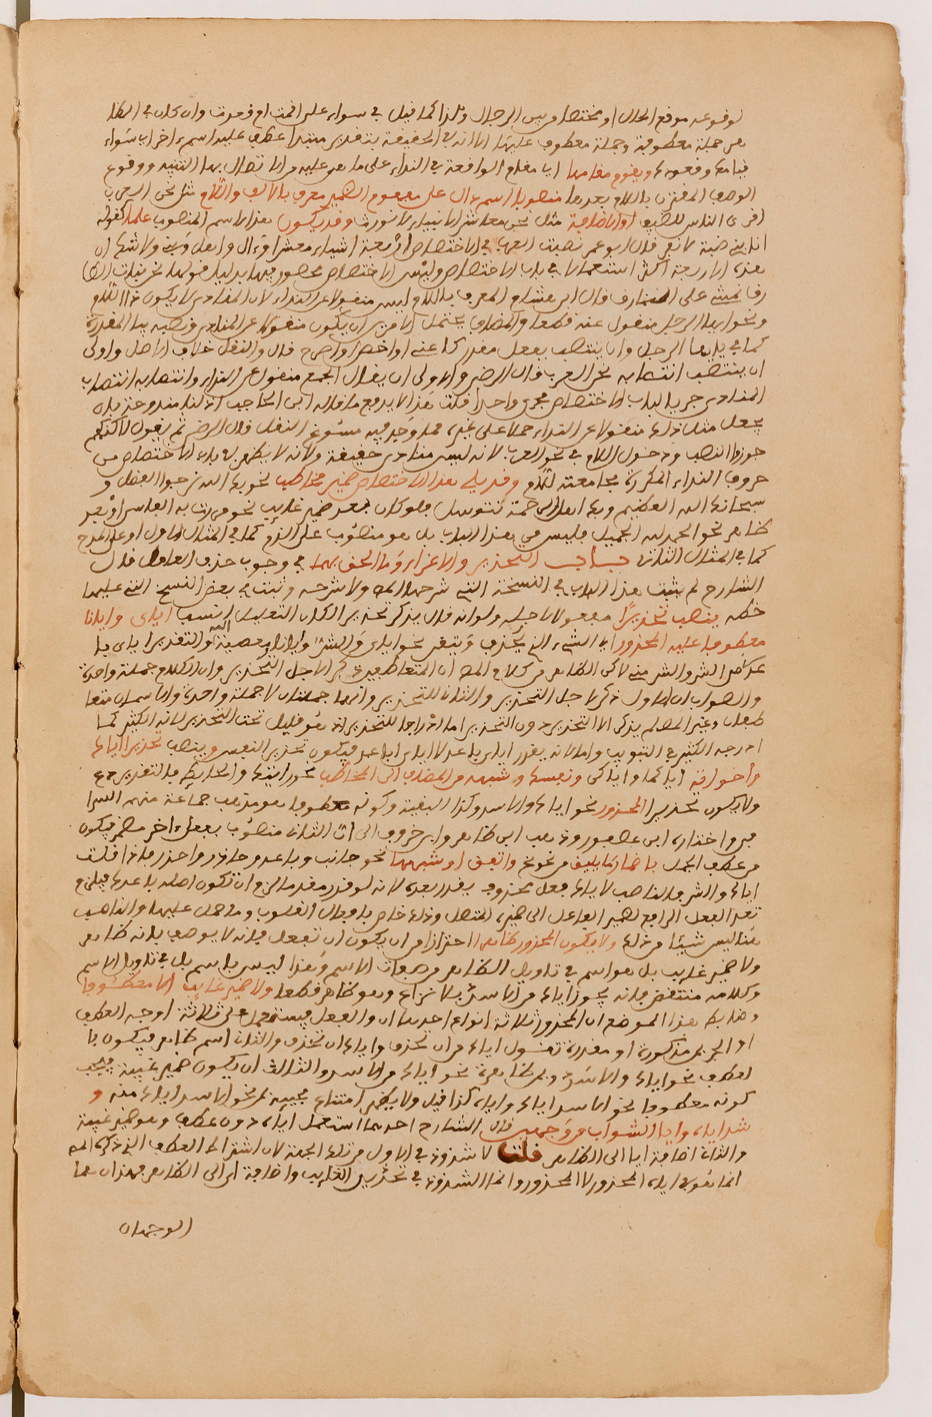 لوقوعه موقع الحال او مختصا من بين الرجال وهذا كما قيل في سواء علي اقمت ام قعدت وان كان في الظاهر
جملة معطوفة وجملة معطوف عليها الا انه في الحقيقة بتقدير مبتدا عطف عليه اسم اخر اي سواء
قيامك وقعودك ويقوم مقامها اي مقام الواقعة في النداء على ما مر عليه من اتصال بها التنبيه ووقوع
الوصف المقترن باللام بعدها منصوبا اسم دال على مفهوم الضمير معرف بالالف واللام مثل نحن العرب
اقرى الناس للضيف او الاضافة مثل نحن معاشر الانبياء لا نورث وقد يكون هذا الاسم المنصوب علما كقوله
انا بني ضبة لا نفر قال ابو عمر نصبت العرب في الاختصاص اربعة اشياء معشر او ال واهل وبني ولا شك ان
هذه الاربعة اكثر استعمالا في باب الاختصاص وليس الاختصاص محصورا فيها بدليل قولهم نحن بنات طارق
نمشي على النمارق قال ابن هشام المعرف باللام ليس منقولا عن النداء لان المنادى لا يكون ذا اللام
ونحو ايها الرجل منقول عنه قطعا والمضاف يحتمل الامرين ان يكون منقولا عن المنادى ونصبه بيا المقدرة
كما في يا ايها الرجل وان ينتصب بفعل مقدر كاعني او اخص او امدح قال والنقل خلاف الاصل واولى
ان ينتصب انتصابه نحن العرب قال الرضي والاولى ان يقال الجميع منقول عن النداء وانتصابه انتصاب
المنادى جريا لباب الاختصاص مجرى واحدا قلت هذا لا يدفع ما قاله ابن الحاجب اذ لنا مندوحة بان
يجعل مثل ذلك منقولا عن النداء حملا على غيره مما وجد فيه مسوغ النقل قال الرضي ثم يقول لاكنهم
جوزوا النصب ودخول اللام في نحن العرب لانه ليس منادى حقيقة ولانه لا يظهر في باب الاختصاص من
حروف النداء المكروه مجامعته للام وقد يلي هذا الاختصاص ضمير مخاطب نحو بك الله نرجو الفضل و
سبحانك الله العظيم وبك اهل الرحمة نتوسل فلو كان بعد ضمير غايب نحو مررت به الفاسق او بعد
ظاهر نحو الحمد لله الجميل فليس من هذا الباب بل هو منصوب على الذم كما في المثال الاول او على المدح
كما في المثال الثاني باب التحذير والاغراء وما الحق بهما في وجوب حذف العامل قال
الشارح لم يثبت هذا الباب في النسخة التي شرحها المص ولا شرحه وثبت في بعض النسخ التي عليها
خطه ينصب تحذيرا مفعول لاجله ولو انه قال يذكر تحذيرا لكان التعليل انسب اياي وايانا
معطوفا عليه المحذور اي الشيء الذي يحذر ويتقى نحو اياي والشر وايانا ومعصية الله والتقدير اياي باعد
عن الشر والشر مني لاكن الظاهر من كلام المص ان المتعاطفين ذكرا لاجل التحذير وان الكلام جملة واحدة
والصواب ان الاول ذكر لاجل التحذير والثاني للتحذير وانهما جملتان لا جملة واحدة والاسمان متعا
طفان وغير المص لم يذكر الا التحذير دون التحذير اما اذ راجا للتحذير اذ هو قليل تحت التحذير لانه الكثير كما
ادرجه الكثير في التبويب واما لانه يقدر اياي باعد لا اياي باعد فيكون تحذير النفس وينصب تحذيرا اياك
واخواته اياكما واياكن ونفسك وشبهه من المضاف الى المخاطب نحو راسك والحايط فالتقدير دع
ولا يكون تحذيرا المحذور نحو اياك والاسد وكذا البقية وكونه معطوفا هو مذهب جماعة منهم السيرا
في واختاره ابن عصفور وذهب ابن طاهر وابن خروف الى ان الثاني منصوب بفعل اخر مضمر فيكون
من عطف الجمل باضمار ما يليق من نحو نح واتق او شبههما نحو جانب وباعد وحاذر واحذر فاذا قلت
اياك والشر فالناصب لاياك فعل محذوف يقدر بعده لانه لو قدر مقدما لزم ان تكون اصله باعدك فيلزم
تعدي الفعل الرافع لضمير الفاعل الى ضميره المتصل وذلك خاص بافعال القلوب وما حمل عليها والناصب
هنا ليس شيئا من ذلك ولا يكون المحذور ظاهرا احترازا من ان يكون ان تفعل فانه لا يوصف بانه ظاهر
ولا ضمير غايب بل هو اسم في تاويل الظاهر من صفات الاسم وهذا ليس باسم بل في تاويل الاسم
وكلامه منتقض فانه يجوز اياك من الاسد بلا نزاع وهو ظاهر قطعا ولا ضمير غايب الا معطوفا
وضابط هذا الموضع ان المحذور ثلاثة انواع احدها ان والفعل فيستعمل على ثلاثة اوجه العطف
او الجر بمن مذكورة او مقدرة تقول اياك من ان تحذف واياك ان تحذف والثاني اسم ظاهر فيكون با
لعطف نحو اياك والاسد وبمن ظاهرة نحو اياك من الاسد والثالث ان يكون ضمير غيبة فيجب
كونه معطوفا نحو الاسد اياك واياه كذا قيل ولا يظهر امتناع مجيئه بمن نحو الاسد اياك منه و
شذ اياه وايا الشواب من وجهين قال الشارح احدهما استعمال اياه دون عطف وهو ضمير غيبة
والثاني اضافة ايا الى الظاهر قلت لا شذوذ في الاول من تلك الجهة لان اشتراط العطف الذي ذكره المص
انما هو في اياه المحذور لا المحذور وانما الشذوذ في تحذير الغايب واضافة ايا الى الظاهر فهذان هما
الوجهان